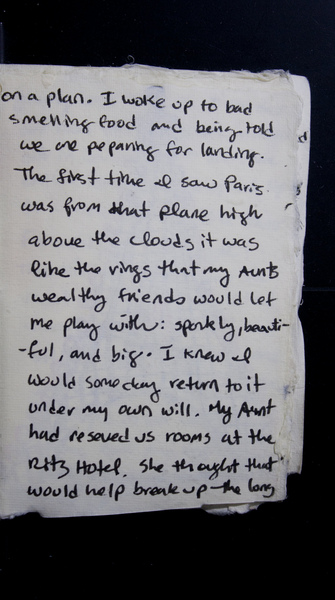 on a plan. I woke up to bad
smelling food and being told
we are peparing for landing.
The first time I saw Paris
was from that plane high
above the clouds it was
like the rings that my Aunts
wealthy friends would let
me play with: sparkly, beauti-
-ful, and big. I knew I
would someday return to it
under my own will. My Aunt
had reseved us rooms at the
Ritz Hotel. She thought that
would help break up the long